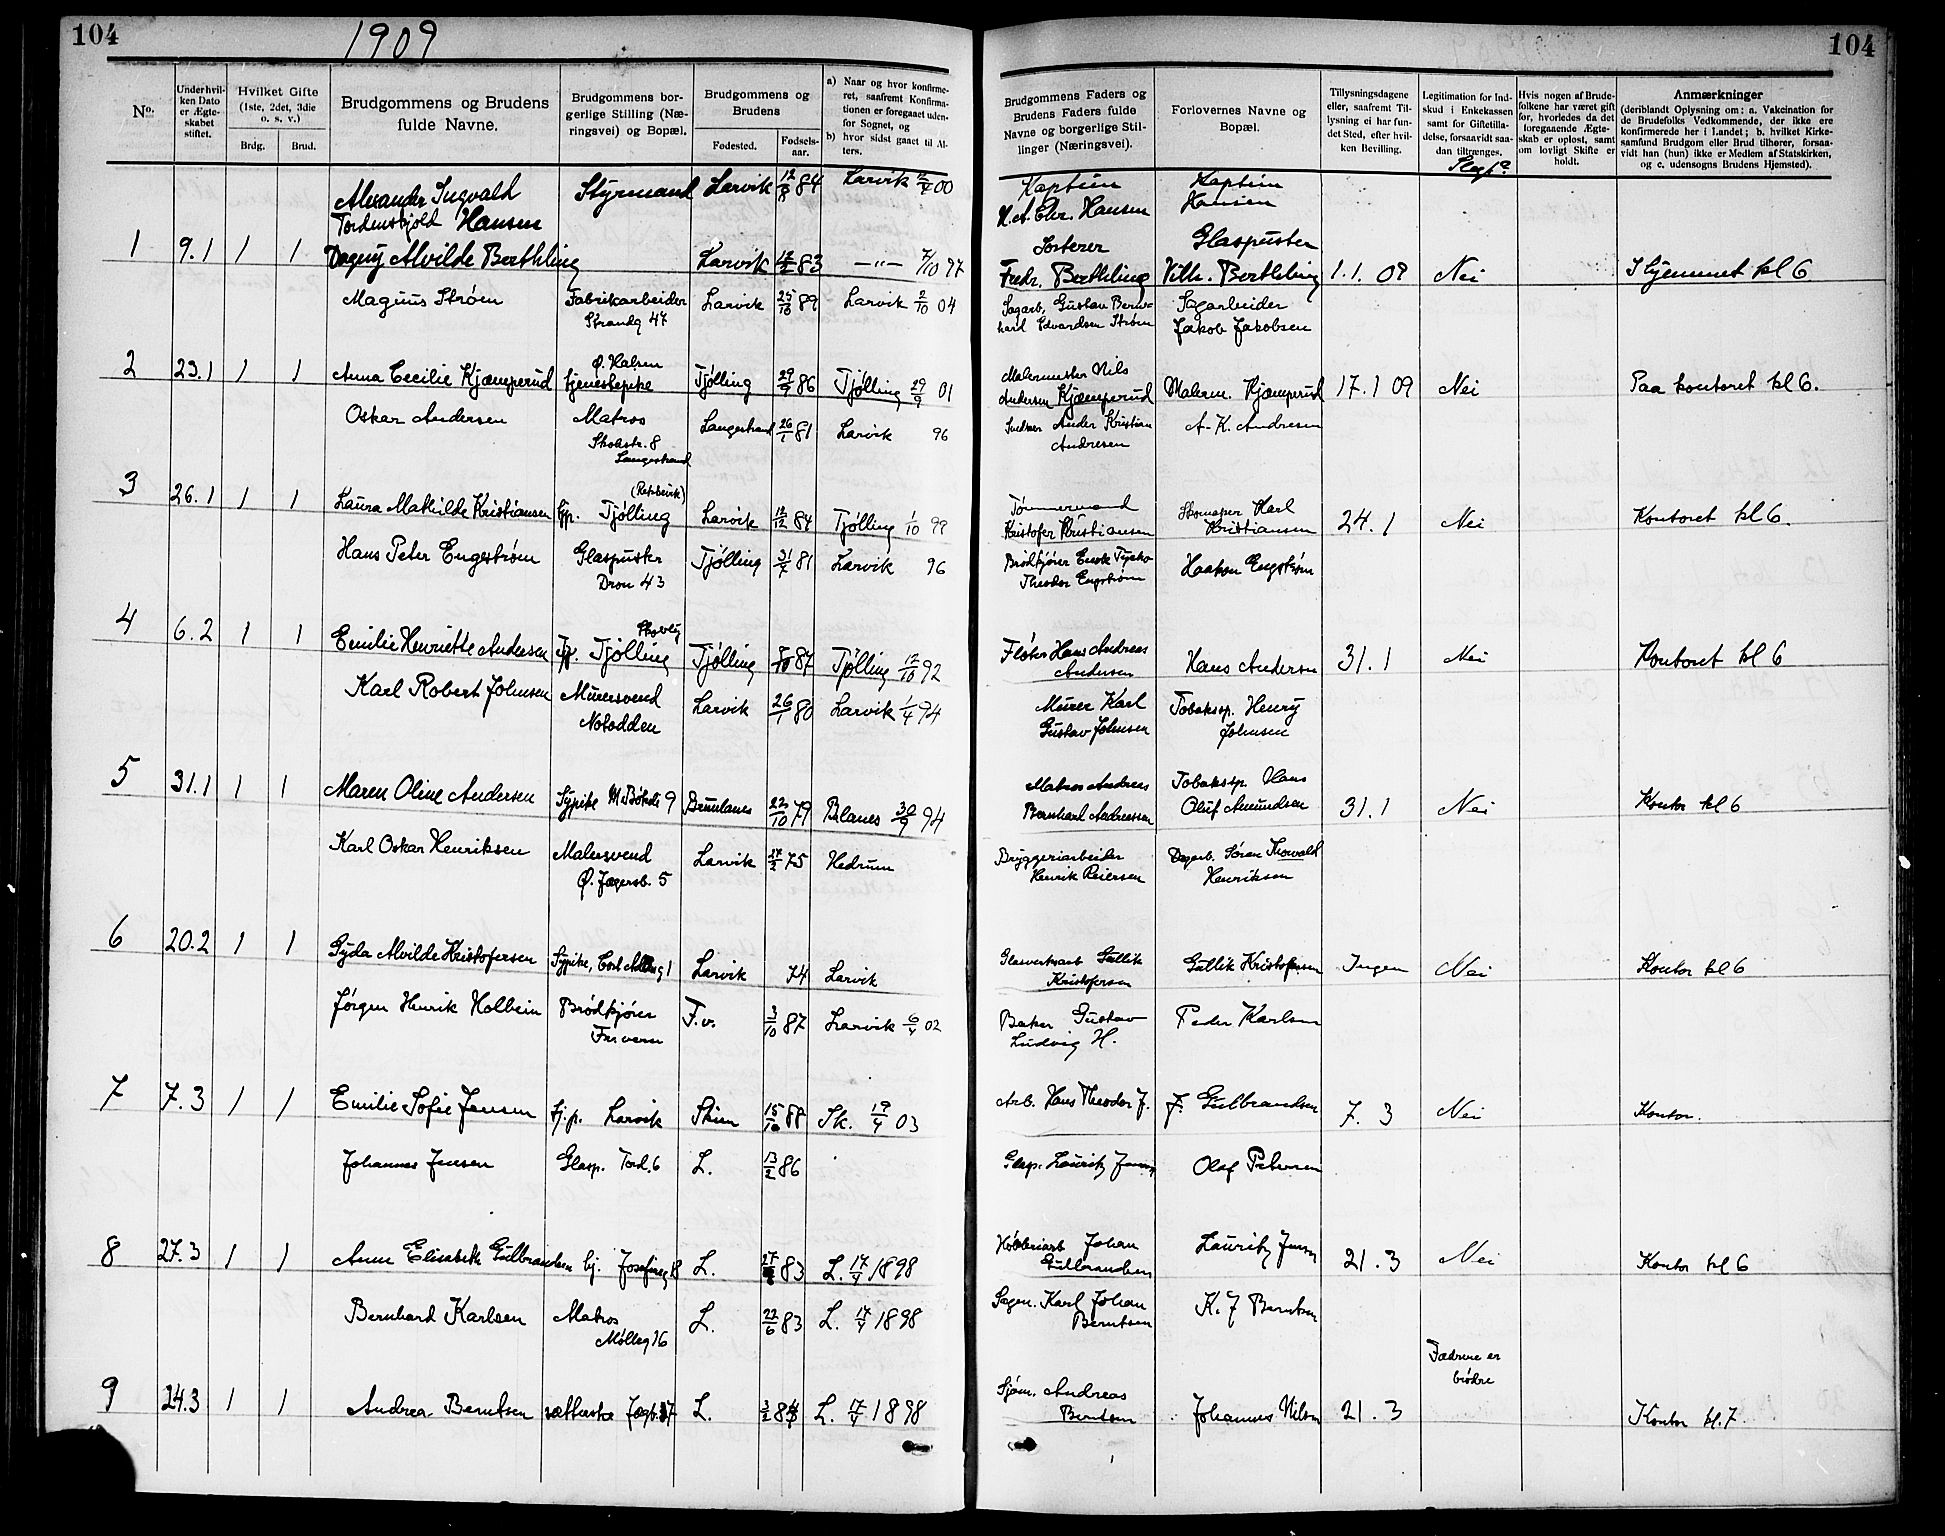 104
1909
No.
Under hvil-
ken Dato
er Ægte-
skabet
stiftet.
Hvilket Gifte
(1ste, 2det, 3die
o. s. v.)
Brdg.
Brud.
Brudgommens og Brudens
fulde Navne.
Brudgommens bor-
gerlige Stilling (Næ-
ringsvei) og Bopæl.
Brudgommens og
Brudens
Fødested.
Fødsels-
aar.
a) Naar og hvor konfirme-
ret, saafremt Konfirma-
tionen er foregaaet uden-
for Sognet, og
b) hvor sidst gaaet til Al-
ters.
Alexander Ingvald
Tordenskjold Hansen
Styrmand Larvik 84 Larvik 00
1 9.1 1 1 Dagny Alvilde Berthling Larvik 83 —"— 7/10 97
Magnus Strøm Fabrikarbeider Larvik 89 Larvik 2/10 04
Strandg 47
Ø. Halsen
2 23.1 1 1 Anna Cecilie Kjæmperud tjenestepike Tjølling 29/9 86 Tjølling 29/9 01
Oskar Andersen Matros Langestrand 26/1 81 Larvik 96
Skolestr. 8
Langestrand
3 26.1 1 1 Laura Mathilde Kristiansen tjp. Tjølling Larvik 84 Tjølling 1/10 99
Hans Peter Engestrøm Glaspuster Tjølling 31/7 81 Larvik 96
Dron 43
4 6.2 1 1 Emilie Henriette Andersen Tjp. Tjølling Tjølling 87 Tjølling 92
Karl Robert Johnsen Murersvend Larvik 26/1 80 Larvik 1/4 94
Notodden
5 31.1 1 1 Maren Oline Andersen Sypike 9 Brunlanes 22/10 79 Blanes 30/9 94
Karl Oskar Henriksen Malersvend Larvik 75 Hedrum
Ø. Jegersb. 5
6 20.2 1 1 Gyda Alvilde Kristofersen Sypike, Larvik 74 Larvik
Jørgen Henrik Holbein Brødkjører F.v. 3/10 87 Larvik 6/4 02
7 7.3 1 1 Emilie Sofie Jensen tj.p. Larvik Skien 15/10 88 Sk. 19/4 03
Johannes Jensen Glasp. Tord. 6 L. 13/2 86
8 27.3 1 1 Anne Elisabeth Gulbrandsen tj. Josefineg 18 L. 83 L. 17/4 1898
Bernhard Karlsen Matros L. 22/6 83 L. 17/4 1898
Mølleg 16
9 24.3 1 1 Andrea Berntsen L. 3/2 L. 17/4 1898
104
Brudgommens Faders og
Brudens Faders fulde
Navne og borgerlige Stil-
linger (Næringsvei).
Forlovernes Navne og
Bopæl.
Tillysningsdagene
eller, saafremt Til-
lysning ei har fun-
det Sted, efter hvil-
ken Bevilling.
Legitimation for Ind-
skud i Enkekassen
samt for Giftetilla-
delse, forsaavidt saa-
dan tiltrænges.
Hvis nogen af Brude-
folkene har været gift
før, hvorledes da det
foregaaende Ægte-
skab er opløst, samt
om lovligt Skifte er
holdt.
Anmærkninger
(deriblandt Oplysning om: a. Vakcination for
de Brudefolks Vedkommende, der ikke ere
konfirmerede her i Landet; b. hvilket Kirke-
samfund Brudgom eller Brud tilhører, forsaa-
vidt han (hun) ikke er Medlem af Statskirken,
og c. udensogns Brudens Hjemsted).
Kaptein Kaptein
Chr. Hansen Hansen
Sorterer Glaspuster
Fredr. Berthling Vilh. Berthling 1.1.09 Nei I hjemmet kl 6.
Sagarb. Gustav Bern- Sagarbeider
hard Edvardsen Strøm Jakob Jakobsen
Malermester Nils
Andersen Kjæmperud Malerm. Kjæmperud 17.1 09 Nei Paa kontoret kl 6.
Snedker Anders Kristian A. K. Andresen
Andresen
Tømmermand Skomager Karl
Kristofer Kristiansen Kristiansen 24.1 Nei Kontoret kl 6.
Brødkjører Tycho Haakon Engstrøm
Theodor Engstrøm
Fløter Hans Andreas
Andersen Hans Andersen 31.1 Nei Kontoret kl 6
Murer Karl Tobakssp. Henry
Gustav Johnsen Johnsen
Matros Andreas Tobakssp. Hans
Bernhard Andreassen Oluf Amundsen 31.1 Nei Kontor kl 6
Bryggeriarbeider Dagarb. Søren Thorvald
Henrik Reiersen Henriksen
Glasverksarb Gullik
Kristofersen Gullik Kristofersen Ingen Nei Kontor kl 6
Baker Gustav Peder Karlsen
Ludvig H.
Arb. Hans Theodor J. J. Gulbrandsen 7.3 Nei Kontor.
Glasp. Lauritz Jensen Olaf Petersen
Høvleriarb Johan Lauritz Jensen
Gulbrandsen 21.3 Nei Kontor kl 6
Sagm. Karl Johan K. J Berntsen
Berntsen
Fædrene er
brødre
Sjøm. Andreas
Berntsen Johannes Nilsen 21.3 Kontor kl. 7